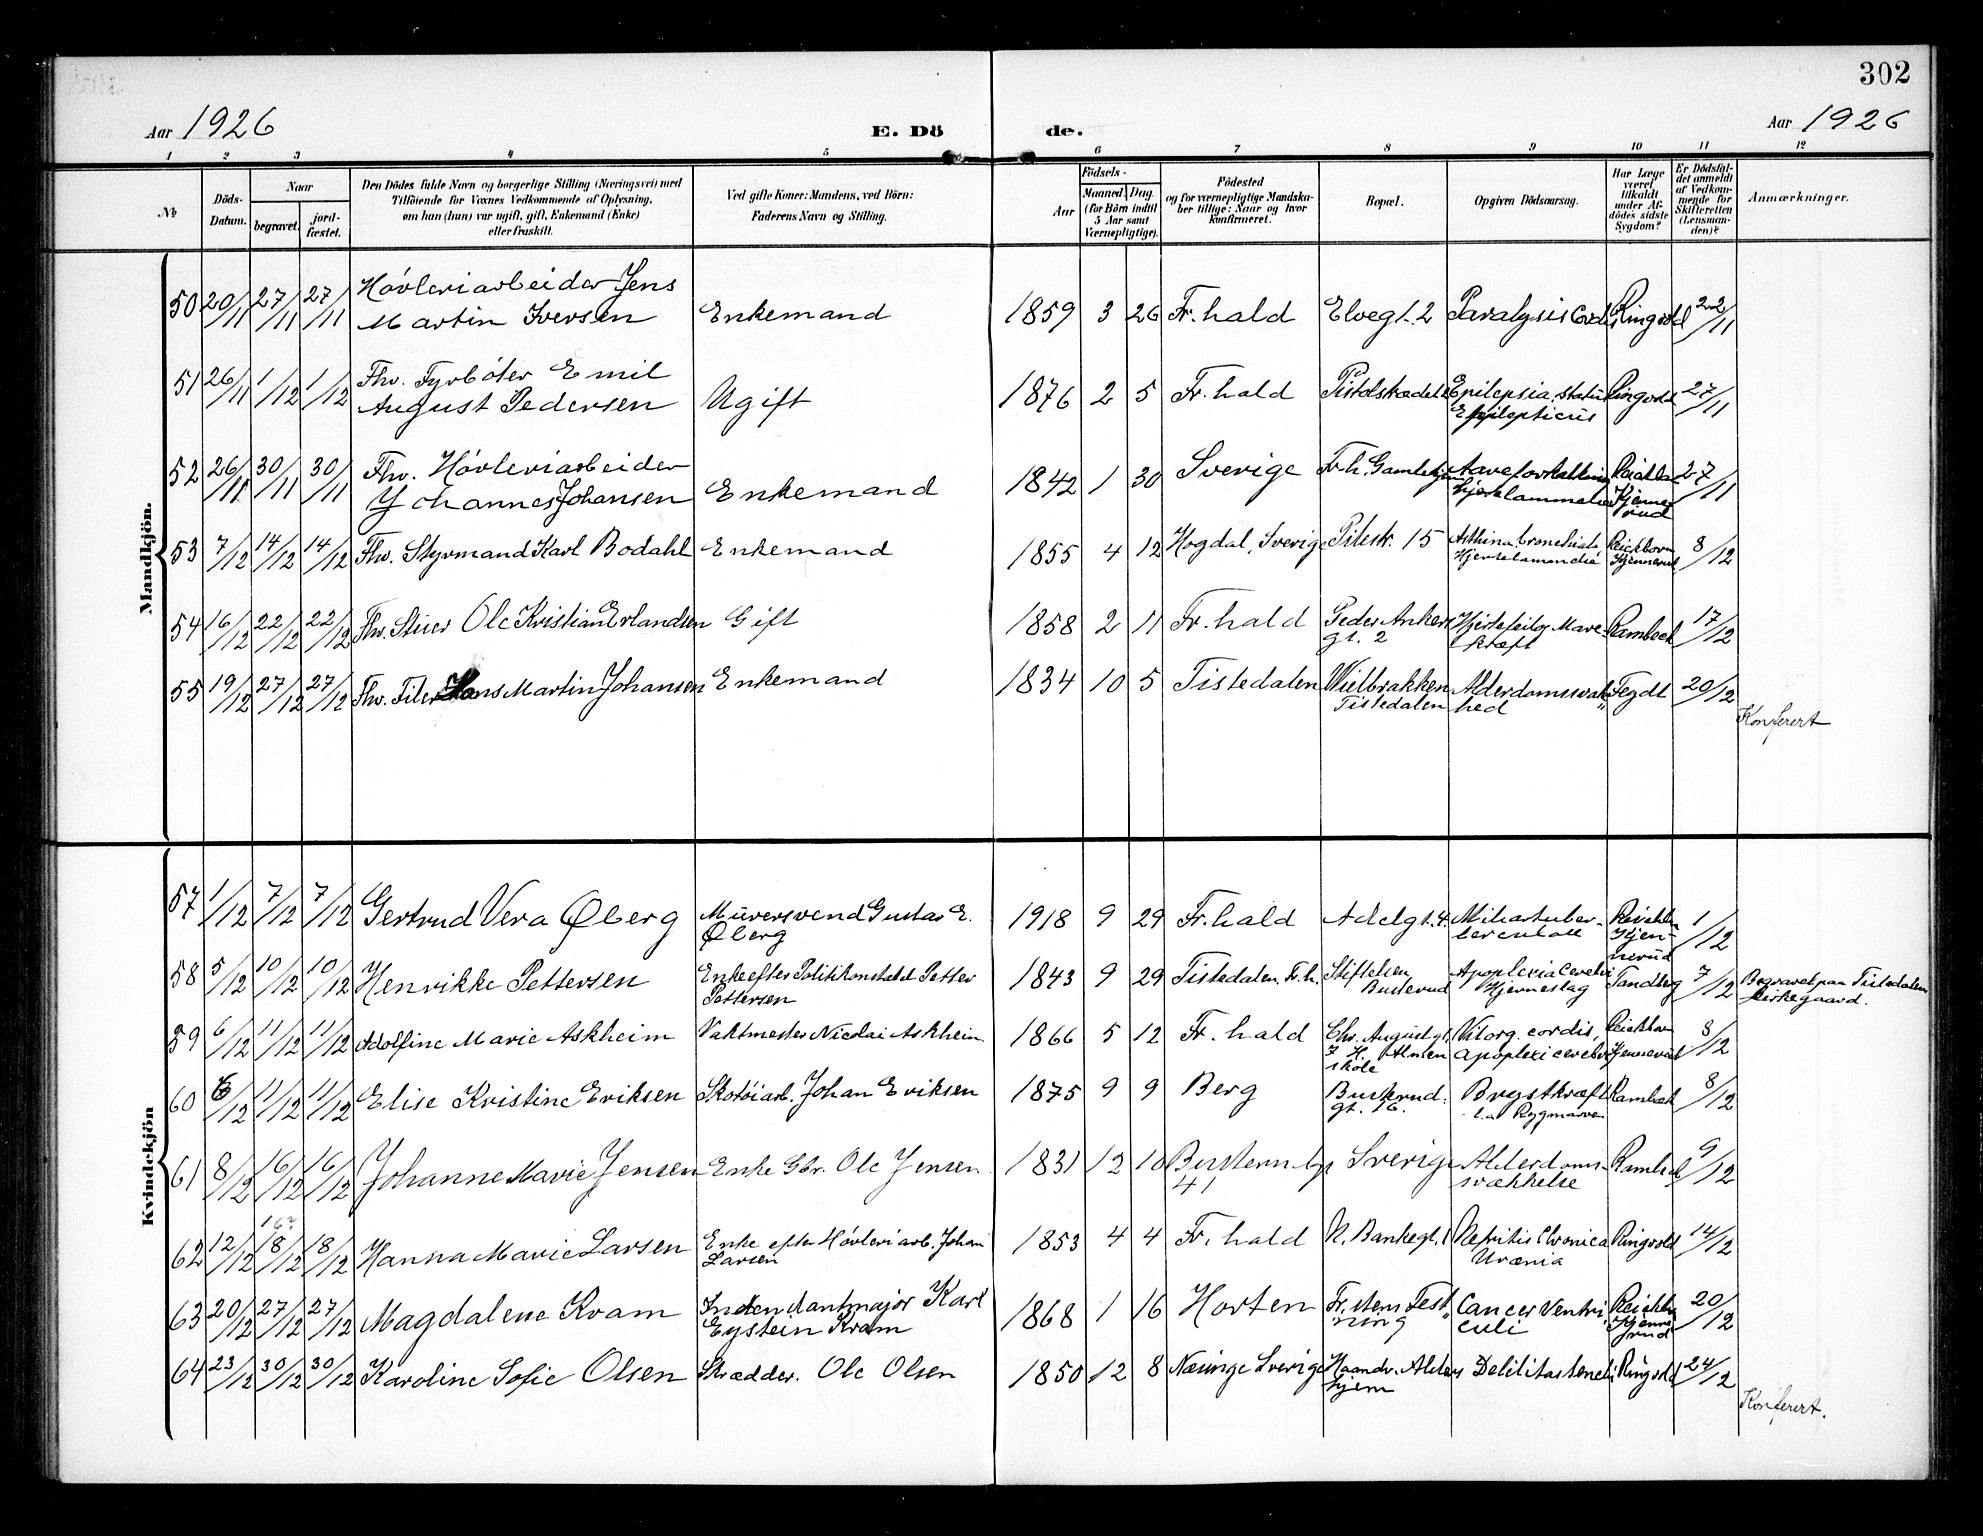 302
Aar 1926
E. Dö
de.
Aar 1926
1 2 3 4 5 6 7 8 9 10 11 12
№
Döds-Datum.
Naar
begravet.
jord-fæstet.
Den Dödes fulde Navn og borgerlige Stilling (Næringsvei) med
Tilföiende for Voxnes Vedkommende af Oplysning,
om han (hun) var ugift, gift, Enkemand (Enke)
eller fraskilt.
Ved gifte Koner: Mandens, ved Börn:
Faderens Navn og Stilling.
Födsels-
Aar
Maaned. Dag.
(for Börn indtil
5 Aar samt
Værnepligtige).
Födested
og for værnepligtige Mandska-
ber tillige: Naar og hvor
konfirmeret.
Bopæl.
Opgiven Dödsaarsag.
Har Læge
været
tilkaldt
under Af-
dödes sidste
Sygdom?
Er Dödsfal-
det anmeldt
af Vedkom-
mende for
Skifteretten
(Lensman-
den)?
Anmærkninger.
Mandkjön.
50 20/11 27/11 27/11 Hövleriarbeider Jens
Martin Iversen Enkemand 1859 3 26 Fr.hald Elvegt. 2 Paralysis Cordis Ringvold 22/11
51 26/11 1/12 1/12 Fhv. Fyrböter Emil
August Pedersen Ugift 1876 2 5 Fr. hald Epilepsia, Ringvold 27/11
Epilepticus
52 26/11 30/11 30/11 Fhv. Hövleriarbeider
Johannes Johansen Enkemand 1842 1 30 Sverige Fr.h. Aareforkalkning 27/11
53 7/12 14/12 14/12 Fhv. Styrmand Karl Bodahl Enkemand 1855 4 12 Hogdal, Sverige Pilestr. 15 Reichborn 8/12
Kjennerud
54 16/12 22/12 22/12 Fhv. Ole Kristian Erlandsen Gift 1858 2 11 Fr. hald Peder Ankers Hjertefeil og Mave- Rambech 17/12
gt. 2 kræft
55 19/12 27/12 27/12 Fhv. Filer Hans Martin Johansen Enkemand 1834 10 5 Tistedalen Wielbrakken Alderdomssvak- Feydt 20/12
Tistedalen hed
Konferert
Kvindekjön
57 1/12 7/12 7/12 Gertrud Vera Øberg Murersvend Gustav E. 1918 9 29 Fr. hald Adelgt. 4. 1/12
Øberg
58 5/12 10/12 10/12 Henrikke Pettersen Enke efter Politikonstabel Petter 1843 9 29 Tistedalen. Fr.h. Stiftelsen Apoplexia Cerebri Tandberg 7/12 Begravet paa Tistedalen
Pettersen Busterud Hjerneslag kirkegaard.
59 6/12 11/12 11/12 Adolfine Marie Askheim Vaktmester Nicolai Askheim 1866 5 12 Fr. hald Chr. Augustgt. Vit. org. cordis, 8/12
7 H. Almen apoplexi cerebri Kjennerud
skole
60 6/12 11/12 11/12 Elise Kristine Eriksen Skotöiarb. Johan Eriksen 1875 9 9 Berg Busterud. Brystkræft Rambech 8/12
gt. 16. Rygmarven
61 8/12 16/12 16/12 Johanne Marie Jensen Enke Gbr. Ole Jensen 1831 12 10 Sverige Alderdoms- Rambech 9/12
41 svækkelse
62 12/12 18/12 18/12 Hanna Marie Larsen Enke efter Hövleriarb. Johan 1853 4 4 Fr. hald N. Bankegt. 1 Nefritis Chronica Ringvold 14/12
Larsen Urænia
63 20/12 27/12 27/12 Magdalene Kvam Intendantmajor Karl 1868 1 16 Horten Fr.stens Fest- Cancer Ventri- 20/12
Eystein Kvam ning culi
64 23/12 30/12 30/12 Karoline Sofie Olsen Skrædder. Ole Olsen 1850 12 8 Næsinge Sverige Haandv. Alders Debilitas senelis Ringvold 24/12
hjem
Konferert.